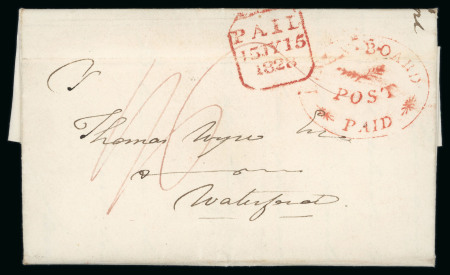 PAID
15JY15
1828
BOARD
POST
PAID
Thomas Wyse Esq
Waterford